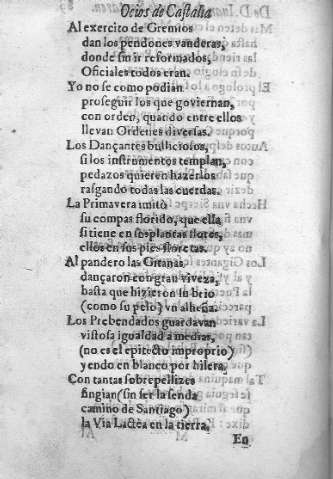 Ocios de Castalia
Al exercito de Gremios
dan los pendones vanderas,
donde sin ir reformados,
Oficiales todos eran.
Yo no se como podian
proseguir los que goviernan,
con orden, quando entre ellos
llevan Ordenes diversas.
Los Dançantes bulliciosos,
si los instrumentos templan,
pedazos quieren hazerlos
rasgando todas las cuerdas.
La Primavera imitò
su compas florido, que ella
si tiene en sus plantas flores,
ellos en sus pies floretas.
Al pandero las Gitanas
dançaron con gran viveza,
hasta que hizieron lu brio
(como su pelo) vn alheña.
Los Prebendados guardavan
vistosa igualdad a medias,
(no es el epitecto improprio)
yendo en blanco por hilera,
Con tantas sobrepellizes
fingian (sin ser la senda
camino de Santiago)
la Via Lactea en la tierra,
En